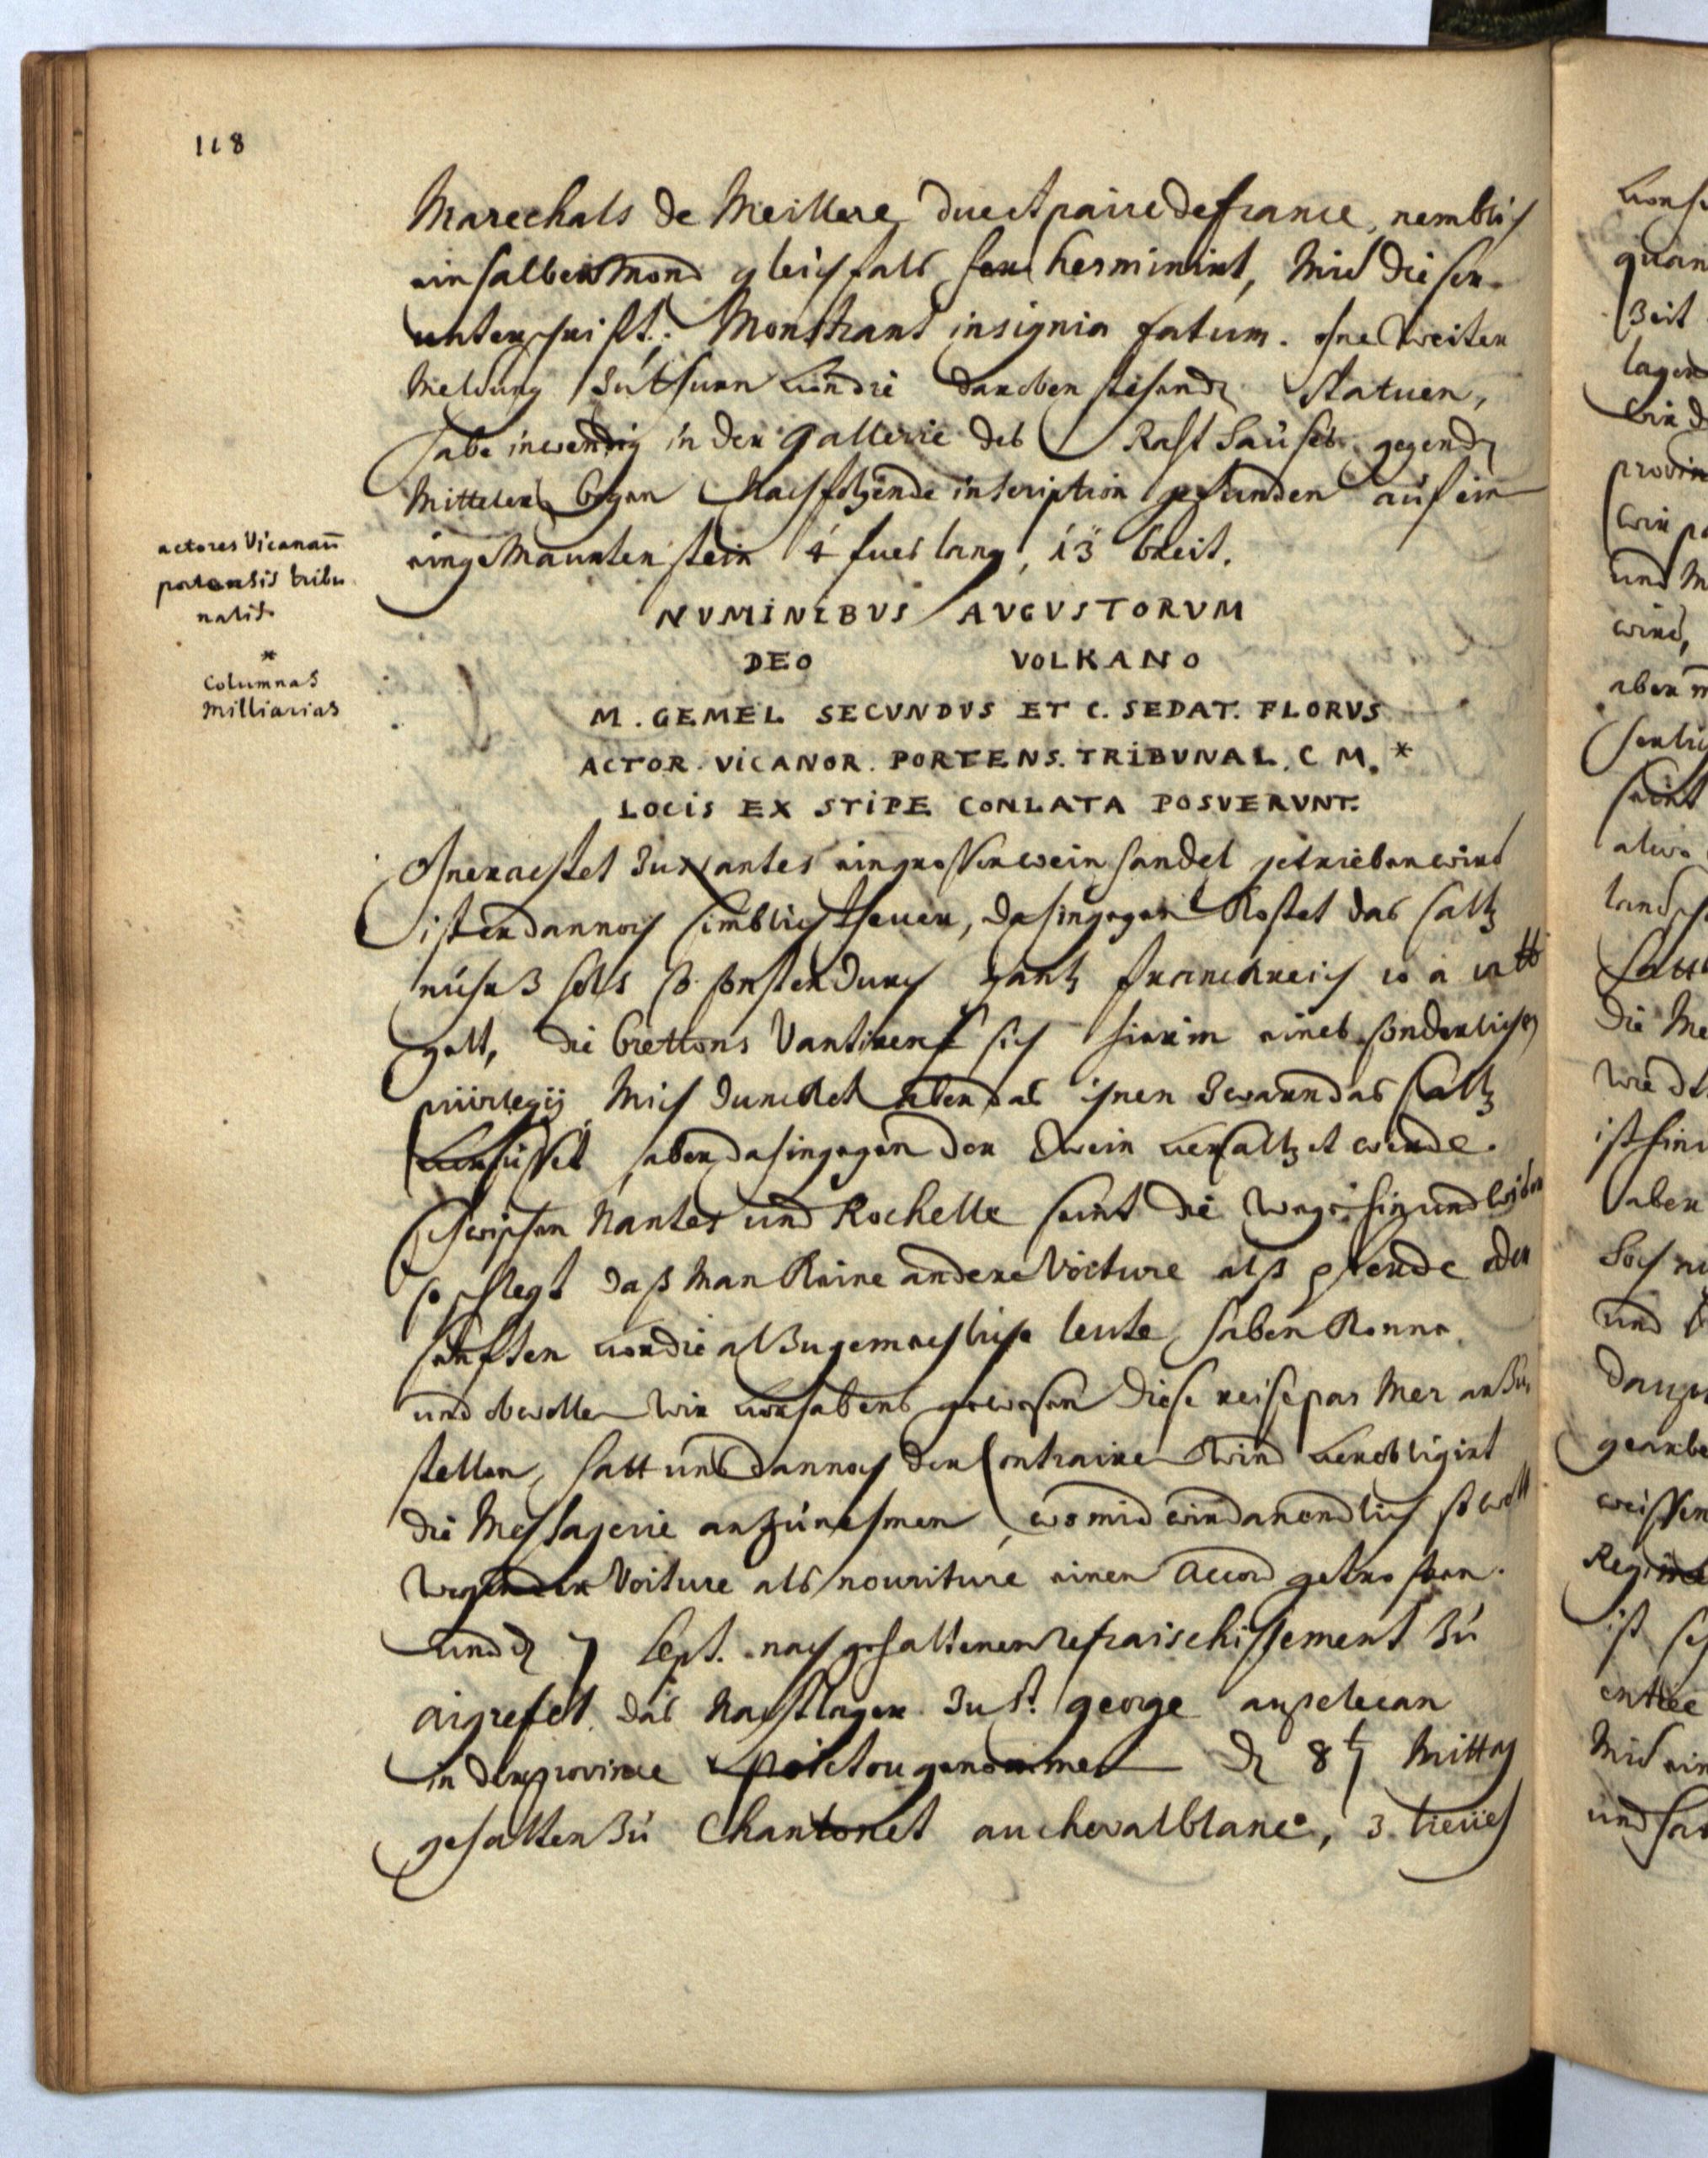 118
Marechals de Meillere duc et paire de france, nemblich
ein halber Mond gleichfals herminirt, Mid dieser
unterschrift: Monstrant insignia fatum. ohne weiter
Meldung der thurn und die daroben stehende Statuen,
habe inwendig in der gallerie des Rahthauses gegen der
Mitteler bogen Nachfolgende inscription gefunden auf ein
eingemaurten stein 4 fues lang, 13 breit.
actores Vicanañ
portensis tribu
nalis
*
Columnas
Milliarias
NVMINIBVS AVGVSTORVM
DEO VOLKANO
M. GEMEL SECVNDVS ET C. SEDAT. FLORVS
ACTOR. VICANOR. PORTENS. TRIBVNAL. C M. *
LOCIS EX STIPE CONLATA POSVERVNT.
Ohnerachtet zu Nantes ein grosser weinhandel getrieben wird
ist er dannoch simblich theuer, dahingegen kostet das saltz
nuhr 3 sols so sonsten durch gantz franckreich 10 a
galt, die brettons Vantiren sich hierin eines sonderlichen
privilegij, Mich duncket aber das ihnen zwarn das saltz
versüsset, aber dahingegen der wein versaltzet werde.
Zwischen Nantes und Rochelle seint die wege hin und wieder
so schlegt daß Man keine andere Voiture alß pferde oder
sänften vor die alzugemachliche leute, haben konne.
und obwollen wir vorhabens gewesen diese reise par Mer anzu
stellen, hatt uns dannoch der Contraire wind verobligirt
die Messagerie anzunehmen, womid wir dan endlich so woll
wegen der Voiture als nouriture einen Accord getroffen.
und d 7 Sept. nach gehaltenen refraischissement zu
aigrefet das Nachtlager zu St. george au pelecan
in der province poictou genommen d 8 t 7 Mittag
gehalten zu Chantonet au cheval blanc, 3 lieües